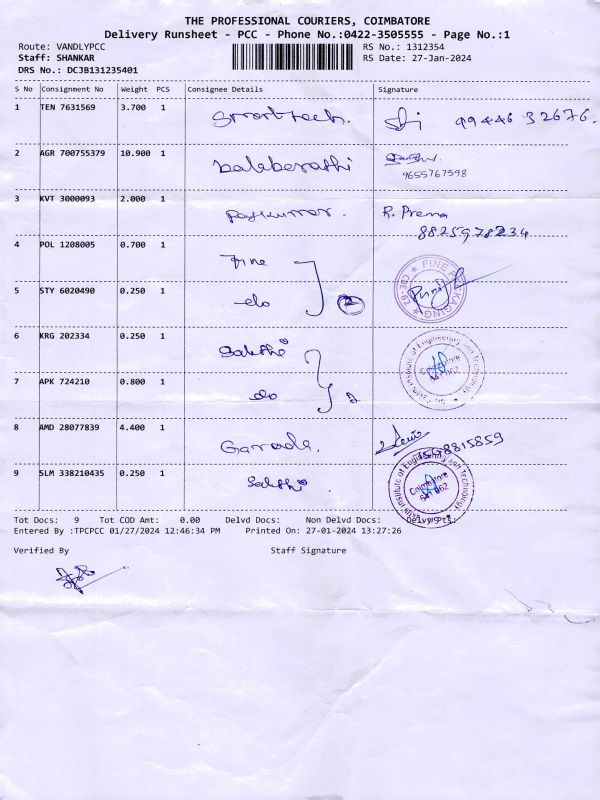 THE PROFESSIONAL COURIERS, COIMBATORE
Delivery Runsheet - PCC - Phone No.:0422-3505555 - Page No.:1
Route: VANDLYPCC RS No.: 1312354
Staff: SHANKAR RS Date: 27-Jan-2024
DRS No.: DCJB131235401
S No Consignment No Weight PCS Consignee Details Signature
1 TEN 7631569 3.700 1 99446 32676.
2 AGR 700755379 10.900 1 balabarathi
9655767598
3 KVT 3000093 2.000 1 Rajkumar. R. Prema
8825978234
4 POL 1208005 0.700 1 Fine
FINE PACKAGING
CBE-62
5 STY 6020490 0.250 1 do 2
6 KRG 202334 0.250 1 Sakthi
Institute of Engineering and Technology
Coimbatore
641 062
7 APK 724210 0.800 1 do 2
8 AMD 28077839 4.400 1
9 SLM 338210435 0.250 1 Sakthi
Institute of Engineering and Technology
Coimbatore
641 062
Tot Docs: 9 Tot COD Amt: 0.00 Delvd Docs: Non Delvd Docs: Delvy Pts:
Entered By :TPCPCC 01/27/2024 12:46:34 PM Printed On: 27-01-2024 13:27:26
Verified By Staff Signature